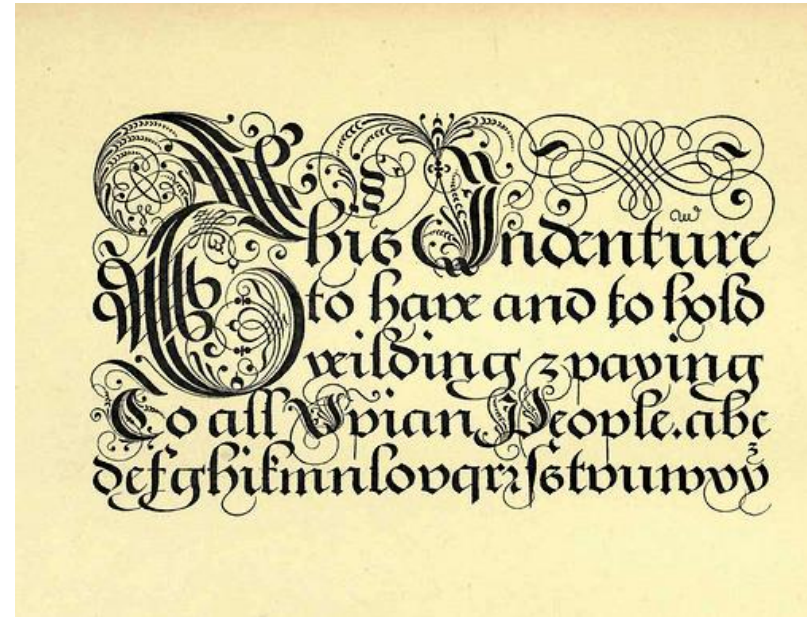 This Indenture
to have and to hold
veilding z paving
To all Xpian People. abc
defghikmnlopqrzſstvuwxyz